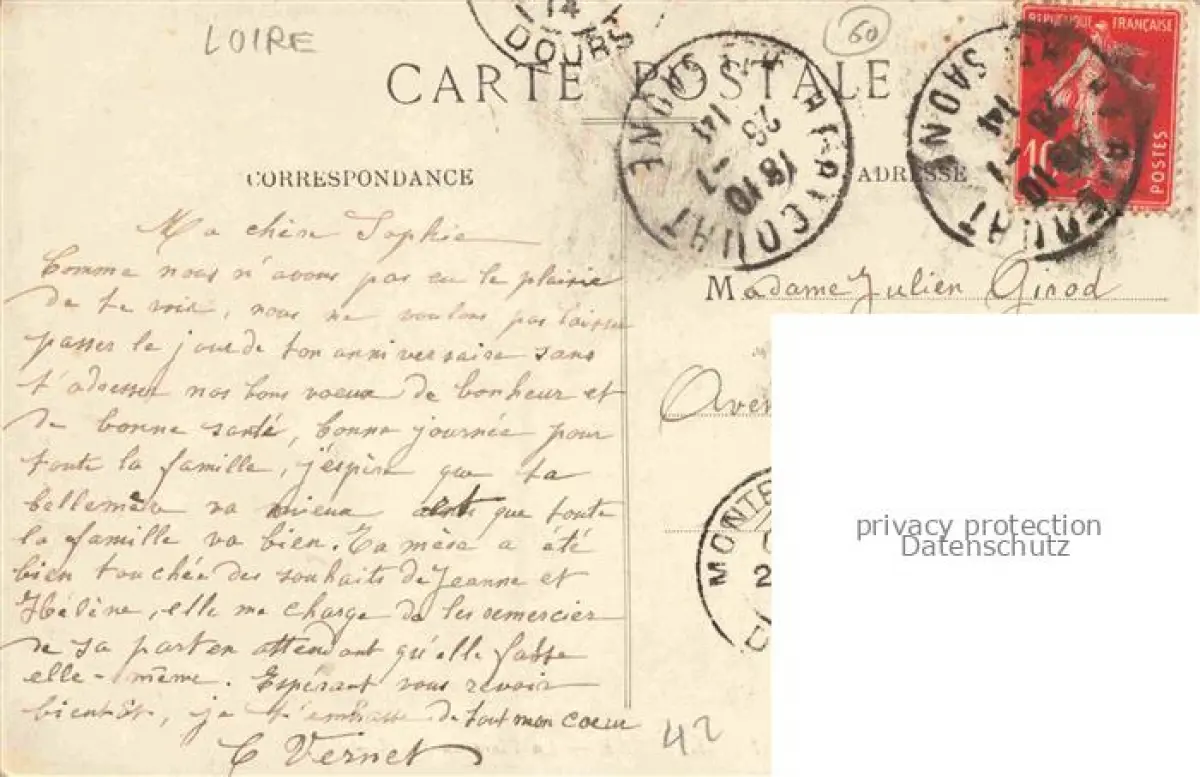 LOIRE
14
DOUBS
60
CARTE POSTALE
RÉPUBLIQUE FRANÇAISE
10
POSTES
HÉRICOURT
18 10
26 -1
14
HTE SAONE
CORRESPONDANCE
ADRESSE
Ma chère Sophie
Comme nous n'avons pas eu le plaisir
de te voir, nous ne voulons pas laisser
passer le jour de ton anniversaire sans
t'adresser nos bons voeux de bonheur et
de bonne santé, bonne journée pour
toute la famille, j'espère que ta
bellemère va mieux et que toute
la famille va bien. Ta mère a été
bien touchée des souhaits de Jeanne et
Hélène, elle me charge de les remercier
de sa part en attendant qu'elle fasse
elle-même. Espérant vous revoir
bientôt, je t'embrasse de tout mon coeur
C Vernet
Madame Julien Girod
Aven
MONTB
2
D
42
privacy protection
Datenschutz